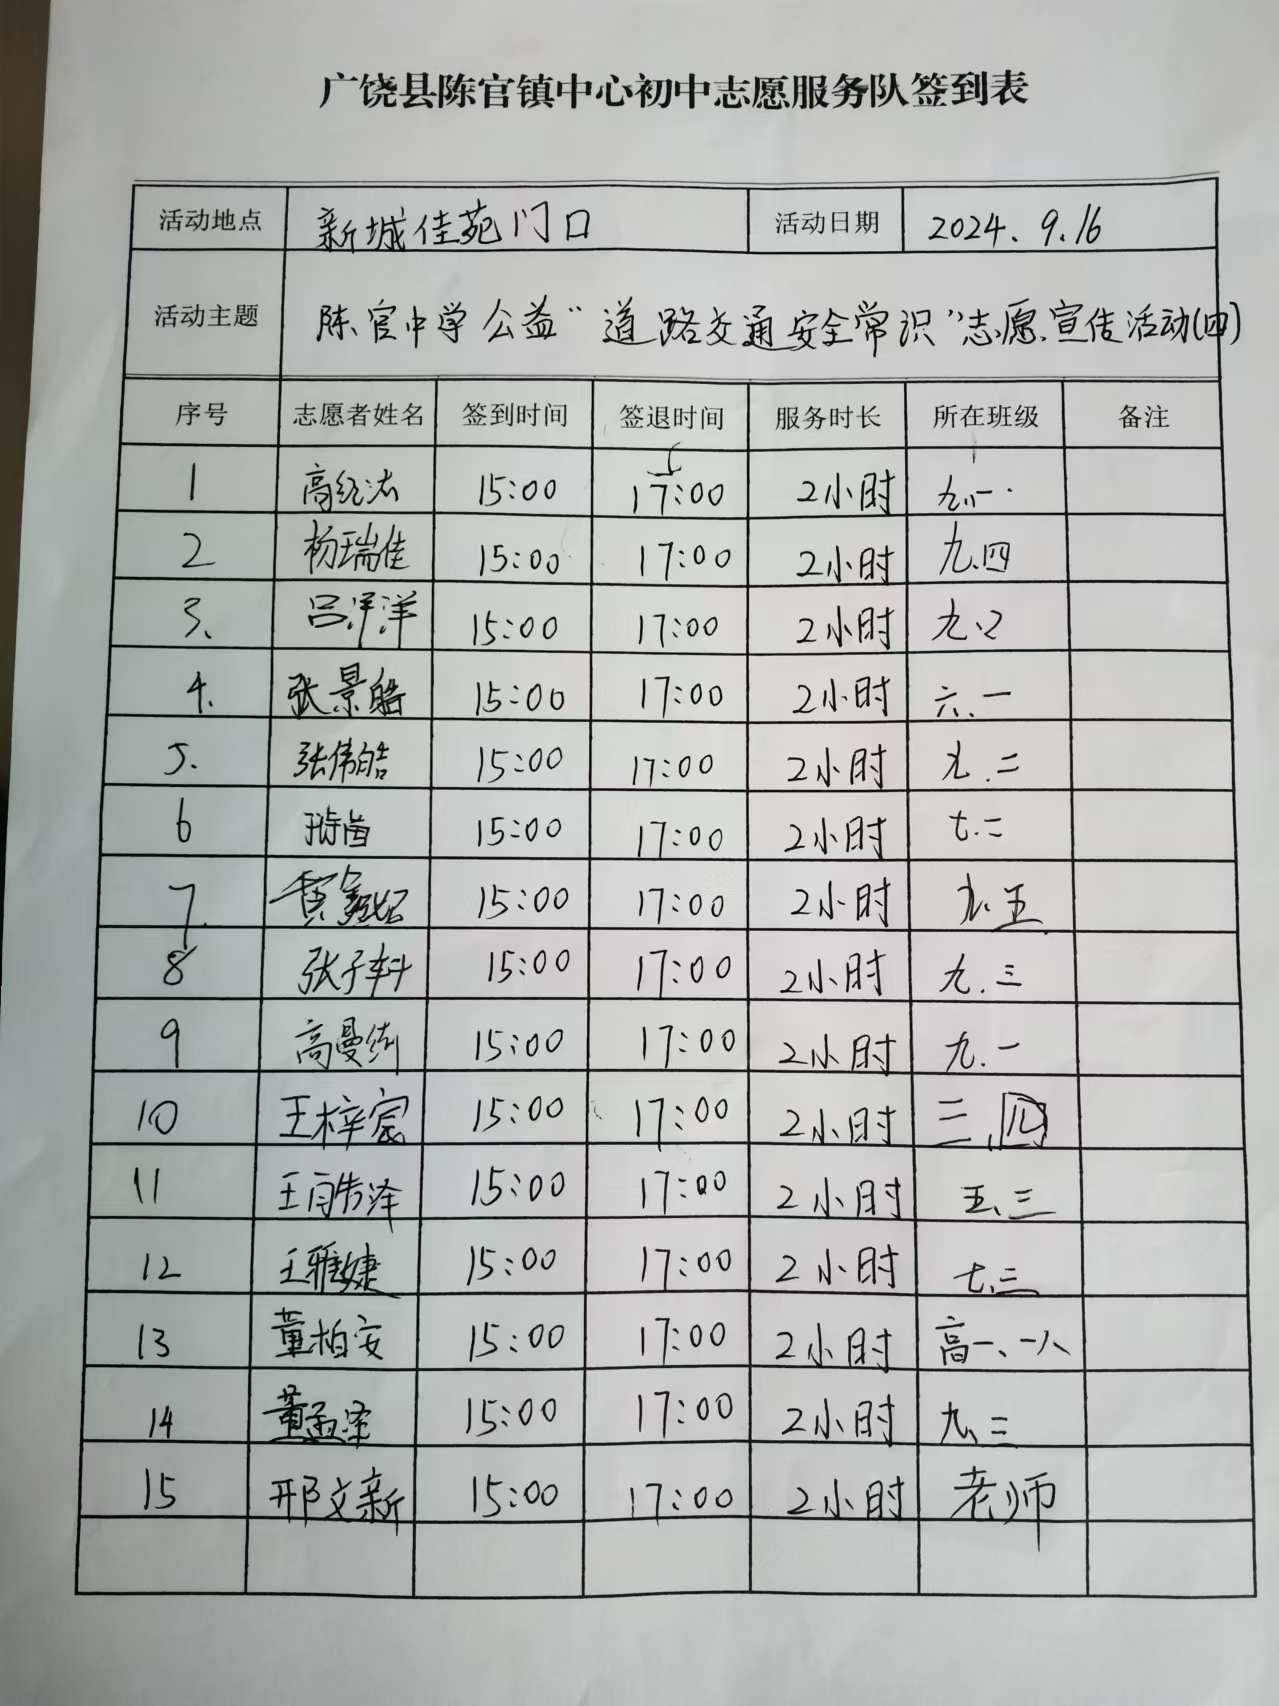 广饶县陈官镇中心初中志愿服务队签到表
活动地点 新城佳苑门口 活动日期 2024.9.16
活动主题 陈官中学公益“道路交通安全常识”志愿宣传活动(四)
序号 志愿者姓名 签到时间 签退时间 服务时长 所在班级 备注
1 15:00 17:00 2小时 九.一
2 杨瑞佳 15:00 17:00 2小时 九.四
3. 吕洋洋 15:00 17:00 2小时 九.2
4. 张景皓 15:00 17:00 2小时 六.一
5. 张伟皓 15:00 17:00 2小时 九.二
6 15:00 17:00 2小时 七.二
7. 15:00 17:00 2小时 九.五
8 张子轩 15:00 17:00 2小时 九.三
9 15:00 17:00 2小时 九.一
10 王梓宸 15:00 17:00 2小时 三.四
11 15:00 17:00 2小时 五.三
12 王雅婕 15:00 17:00 2小时 七.三
13 董柏安 15:00 17:00 2小时 高一、一八
14 董孟泽 15:00 17:00 2小时 九.三
15 邢文新 15:00 17:00 2小时 老师